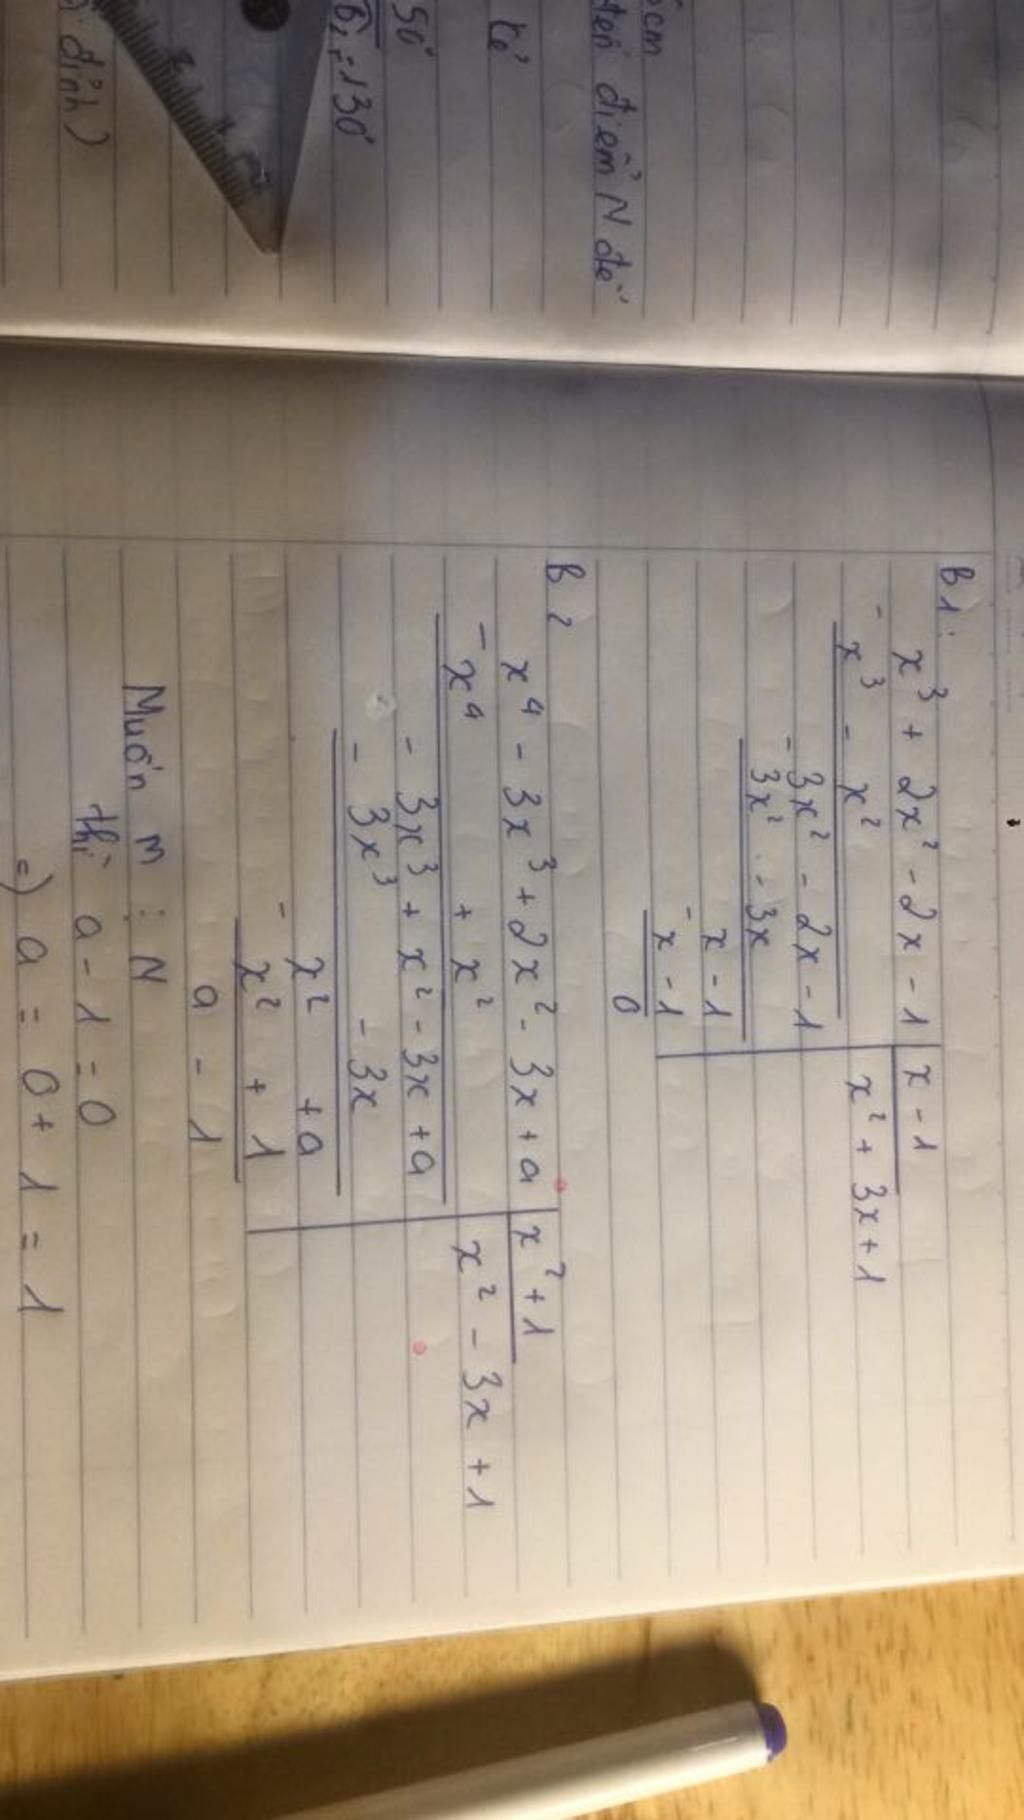 5cm
trên điểm N để
kẻ
50°
B₂ = 130°
đỉnh)
B1:
x³ + 2x² - 2x - 1 | x - 1
- x³ - x² | x² + 3x + 1
3x² - 2x - 1
- 3x² - 3x
x - 1
- x - 1
0
B2
x⁴ - 3x³ + 2x² - 3x + a | x² + 1
- x⁴ + x² | x² - 3x + 1
- 3x³ + x² - 3x + a
- 3x³ - 3x
x² + a
- x² + 1
a - 1
Muốn m ⋮ N
thì a - 1 = 0
=) a = 0 + 1 = 1